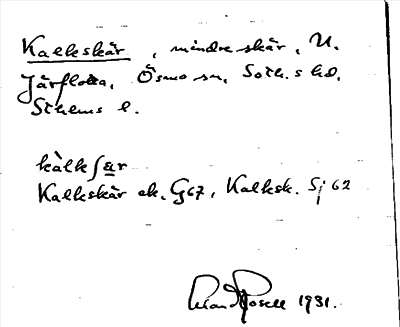 Kalkskär, mindre skär, N.
Järflotta, Ösmo sn, Soth.s hd,
Sthlms l.
kàlkʃær
Kalkskär ek. G67, Kalksk. Sj 62
1931.